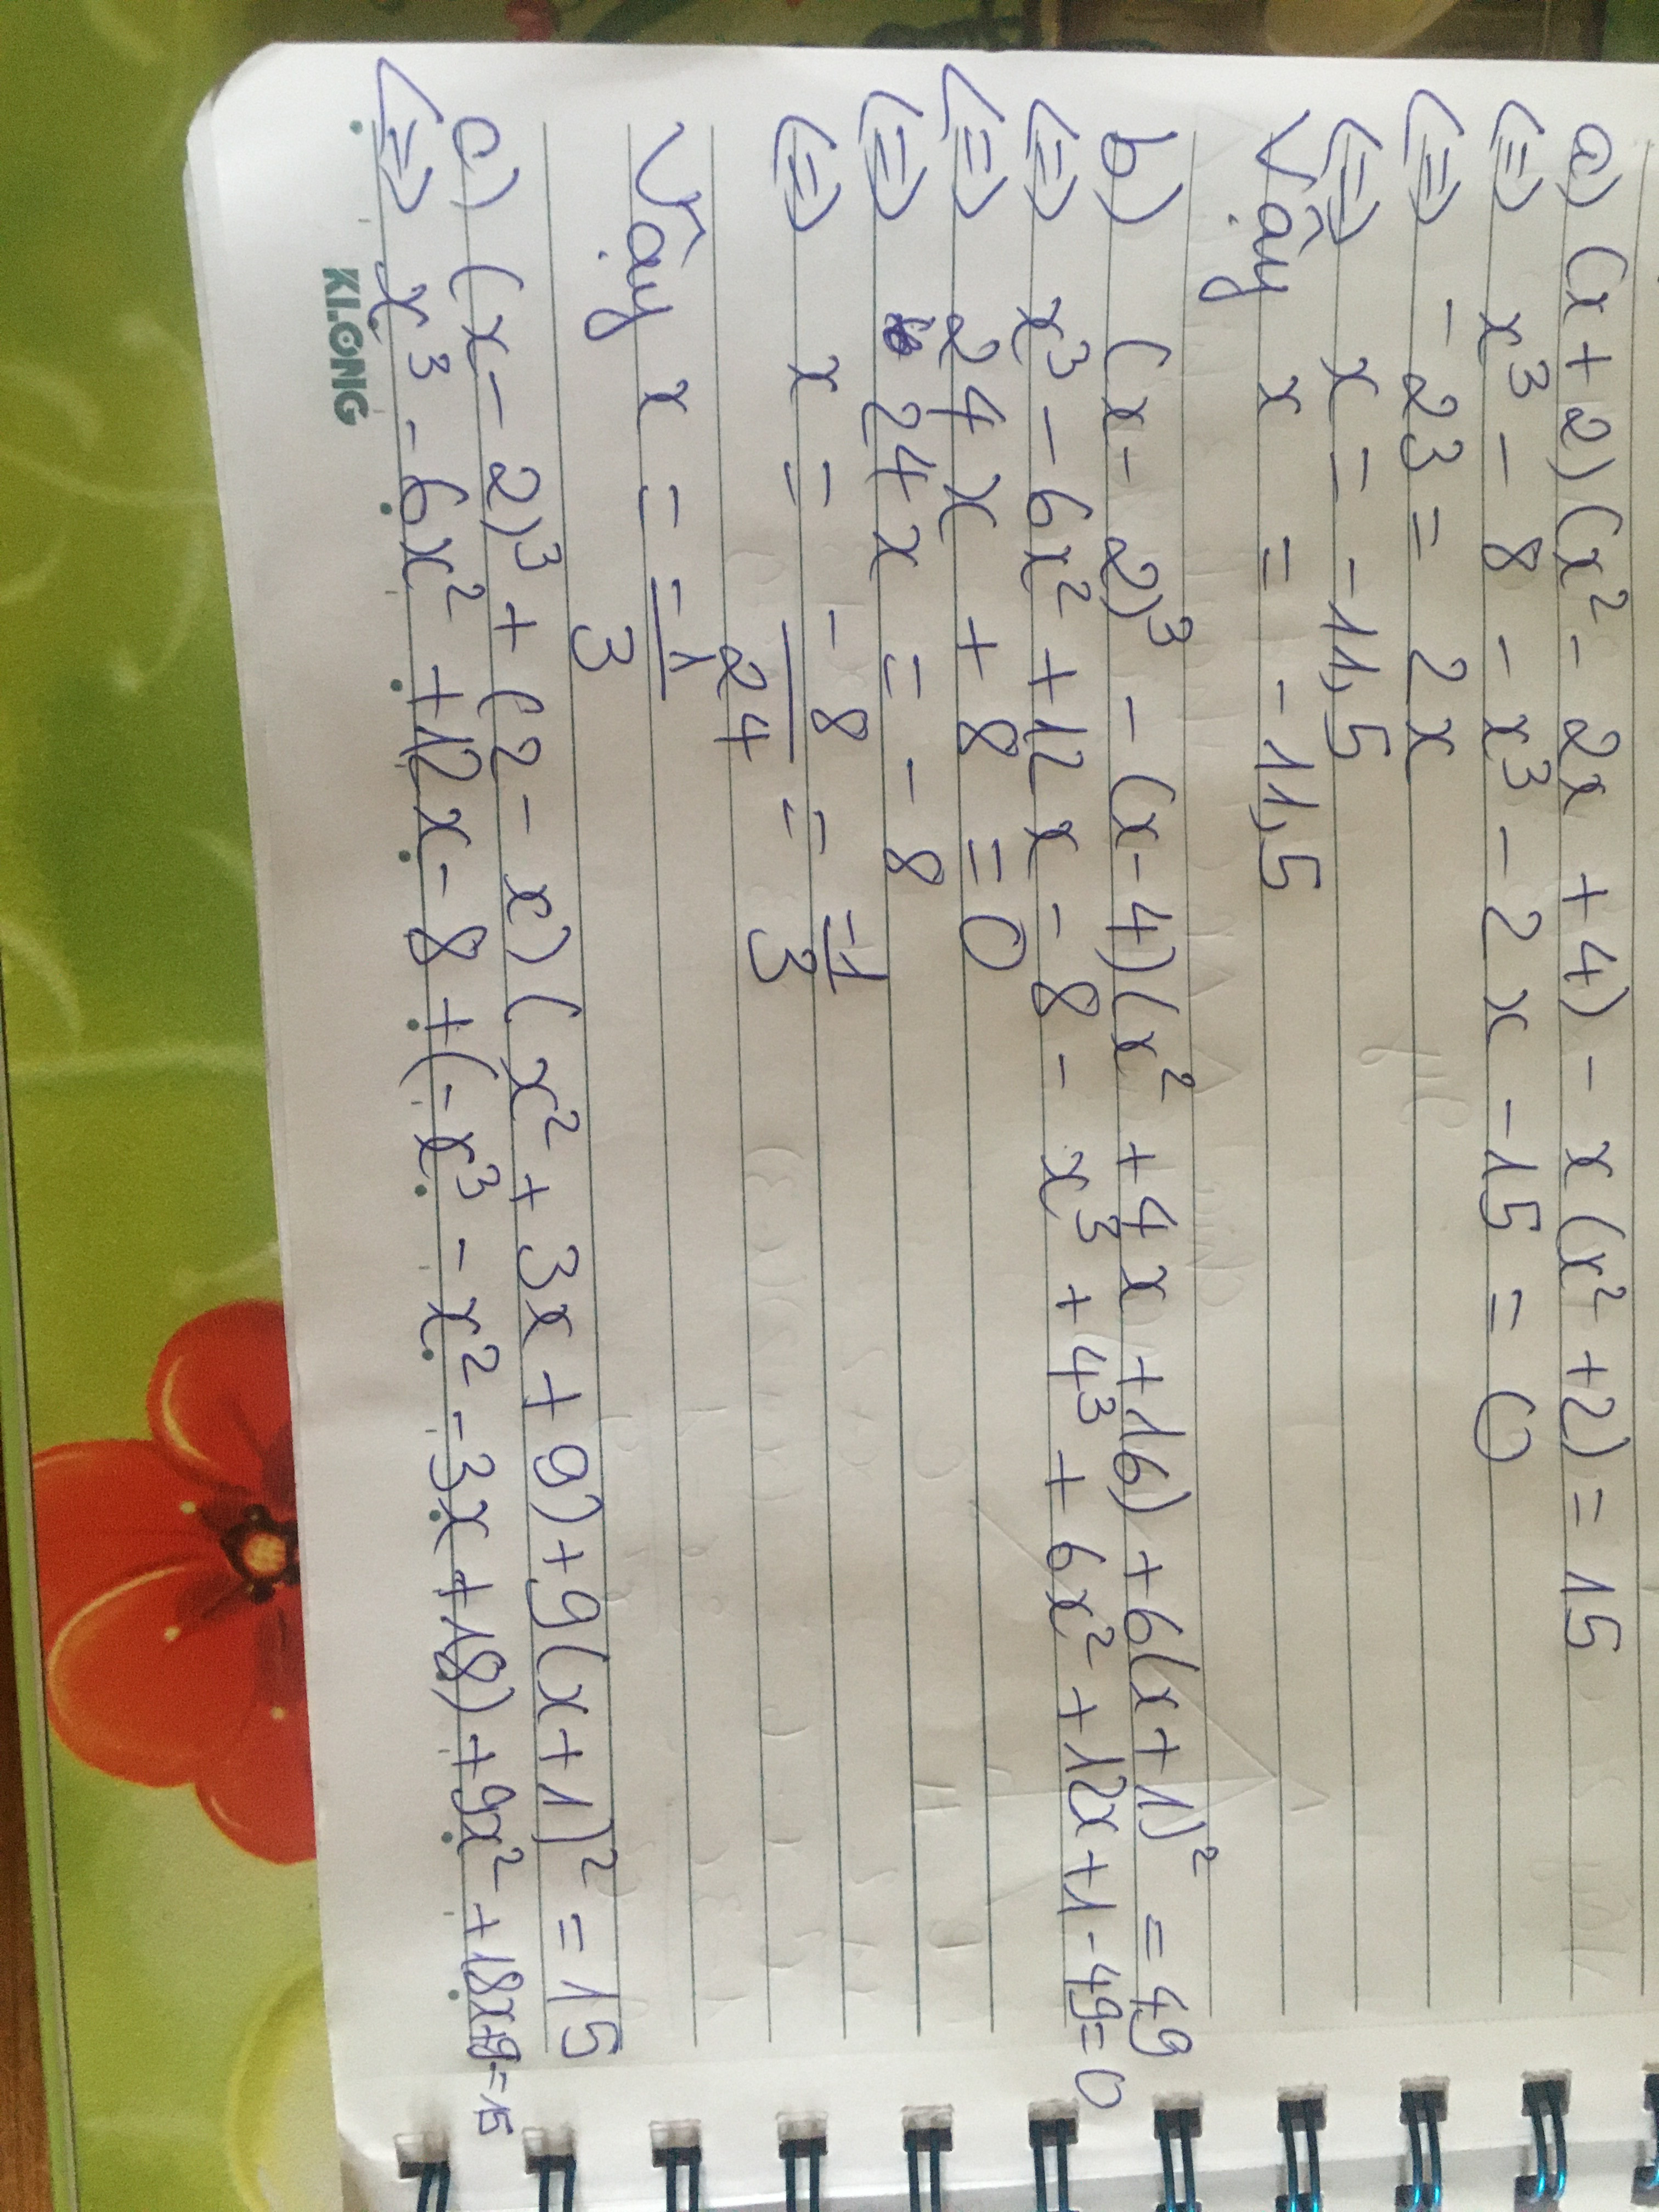 a) (x + 2)(x² - 2x + 4) - x(x² + 2) = 15
<=> x³ - 8 - x³ - 2x - 15 = 0
<=> - 23 = 2x
<=> x = - 11,5
Vậy x = - 11,5
b) (x - 2)³ - (x - 4)(x² + 4x + 16) + 6(x + 1)² = 49
<=> x³ - 6x² + 12x - 8 - x³ + 4³ + 6x² + 12x + 1 - 49 = 0
<=> 24x + 8 = 0
<=> 24x = - 8
<=> x = -8/24 = -1/3
Vậy x = -1/3
c) (x - 2)³ + (2 - x)(x² + 3x + 9) + 9(x + 1)² = 15
<=> x³ - 6x² + 12x - 8 + (- x³ - x² - 3x + 18) + 9x² + 18x + 9 = 15
KLONG